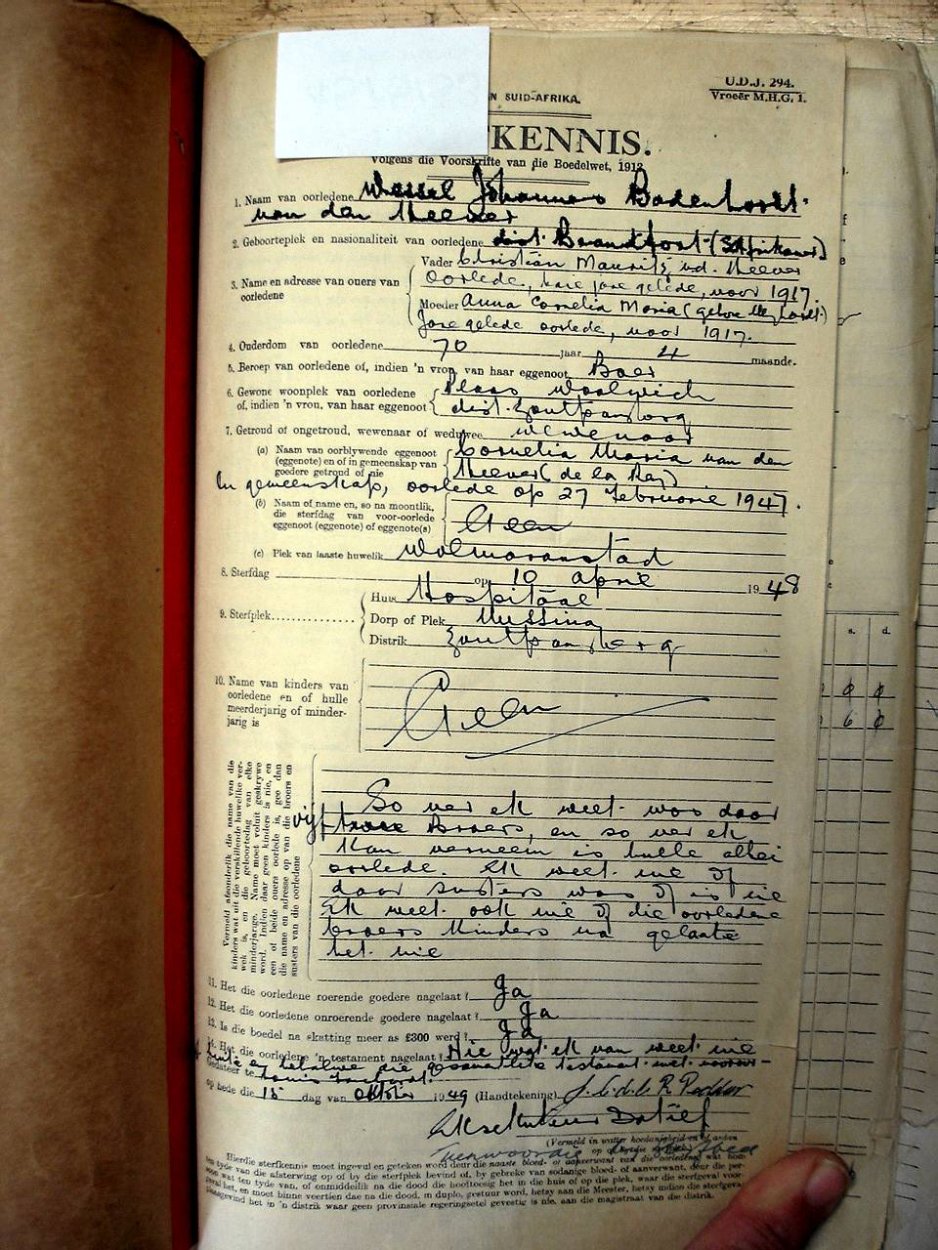 U.D.J. 294.
Vroeër M.H.G. 1.
N SUID-AFRIKA.
KENNIS.
Volgens die Voorskrifte van die Boedelwet, 1913.
1. Naam van oorledene Wessel Johannes Badenhorst
van den Heever
2. Geboorteplek en nasionaliteit van oorledene dist. Brandfort (S Afrikaner)
3. Name en adresse van ouers van oorledene
Vader Christian Maurits v.d. Heever
Oorlede, jare gelede, voor 1917.
Moeder Anna Cornelia Maria (gebore
Jare gelede oorlede, voor 1917.
4. Ouderdom van oorledene 70 jaar 4 maande.
5. Beroep van oorledene of, indien 'n vrou, van haar eggenoot Boer
6. Gewone woonplek van oorledene Plaas Woolwich
of, indien 'n vrou, van haar eggenoot dist. Zoutpansberg
7. Getroud of ongetroud, wewenaar of weduwee wewenaar
(a) Naam van oorblywende eggenoot Cornelia Maria van den
(eggenote) en of in gemeenskap van Heever (de la Rey)
goedere getroud of nie
In gemeenskap, oorlede op 27 Februarie 1947.
(b) Naam of name en, so na moontlik,
die sterfdag van voor-oorlede Geen
eggenoot (eggenote) of eggenote(s)
(c) Plek van laaste huwelik Wolmaransstad
8. Sterfdag op 10 April 1948
9. Sterfplek
Huis Hospitaal
Dorp of Plek Mussina
Distrik Zoutpansberg
10. Name van kinders van
oorledene en of hulle
meerderjarig of minder-
jarig is
Geen
Vermeld afsonderlik die name van die
kinders wat uit die verskillende huwelike ver-
wek is, en die geboortedag van elke
minderjarige. Name moet voluit geskrywe
word. Indien daar geen kinders is nie, en
een of beide ouers oorlede is, gee dan
die name en adresse op van die broers en
susters van die oorledene
So ver ek weet was daar
vyf broers en so ver ek
kan verneem is hulle almal
oorlede. Ek weet nie of
daar susters was of is nie
Ek weet ook nie of die oorledene
broers kinders na gelaat
het nie
11. Het die oorledene roerende goedere nagelaat? Ja
12. Het die oorledene onroerende goedere nagelaat? Ja
13. Is die boedel na skatting meer as £300 werd? Ja
14. Het die oorledene 'n testament nagelaat? Nie wat ek van weet nie
behalwe die gesamentlike testament met
Gedateer te Louis Trichardt
op hede die 15 dag van Oktober 1949 (Handtekening)
Eksekuteur Datief
(Vermeld in watter hoedanigheid
Teenwoordig
Hierdie sterfkennis moet ingevul en geteken word deur die naaste bloed- of aanverwant van die oorledene, wat
ten tyde van die afsterwing op of by die sterfplek bevind of, by gebreke van sodanige bloed- of aanverwant, deur die per-
soon wat ten tyde van, of onmiddelik na die dood die hooftoesig het in die huis of op die plek, waar die sterfgeval voor-
geval het, en moet binne veertien dae na die dood, in duplo, gestuur word, hetsy aan die Meester, hetsy indien die sterfgeval
plaasgevind het in 'n distrik waar geen provinsiale regeringsetel gevestig is nie, aan die magistraat van die distrik.
s. d.
0 0
6 0